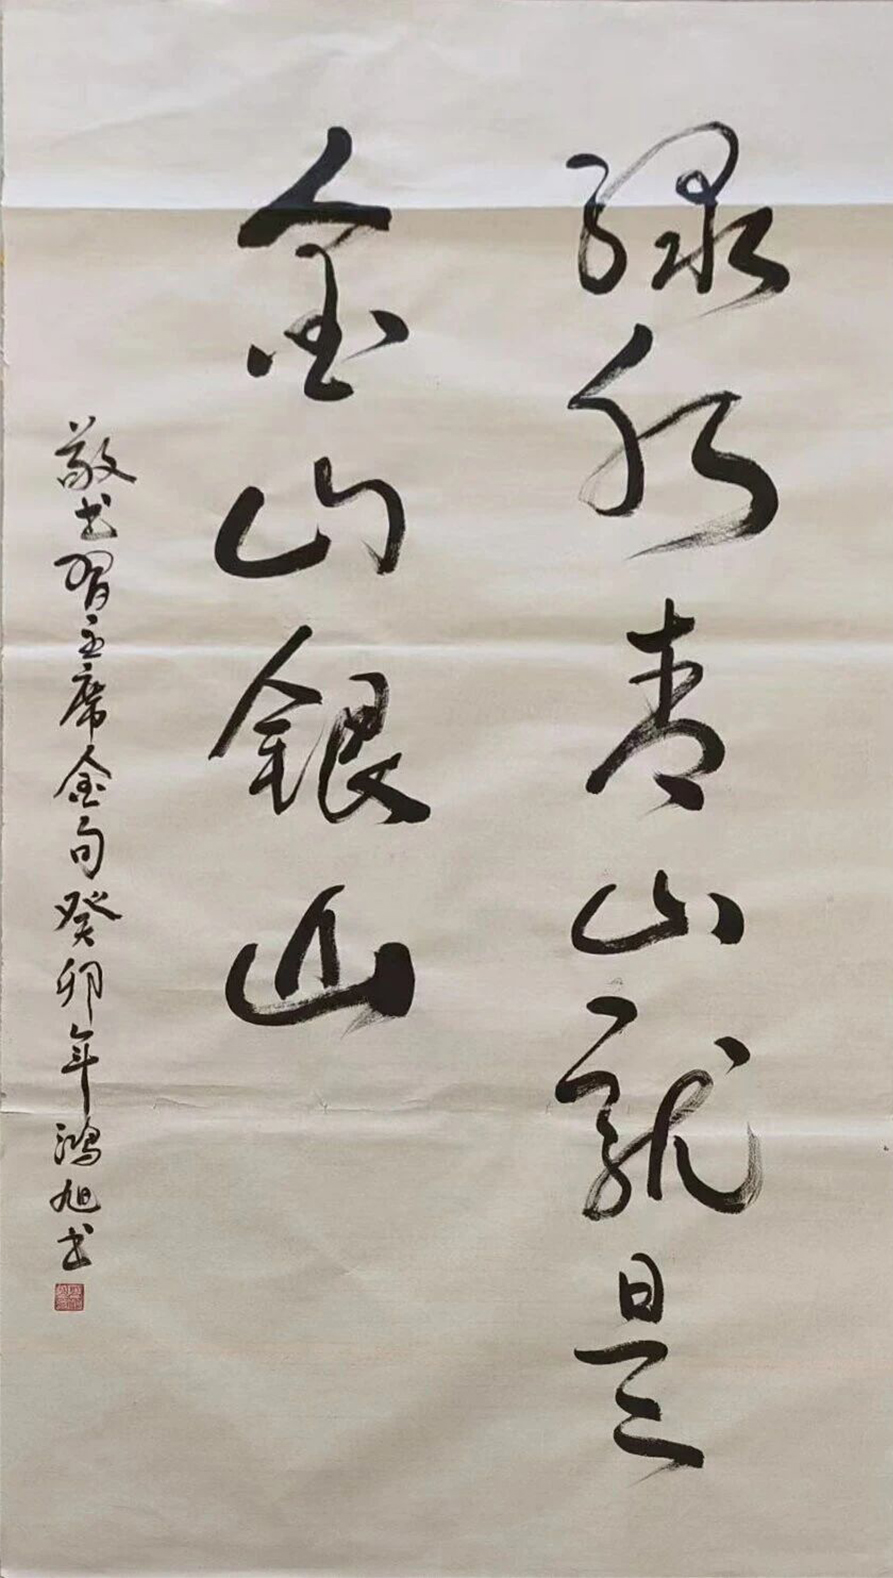 绿水青山就是
金山银山
敬书习主席金句癸卯年鸿旭书